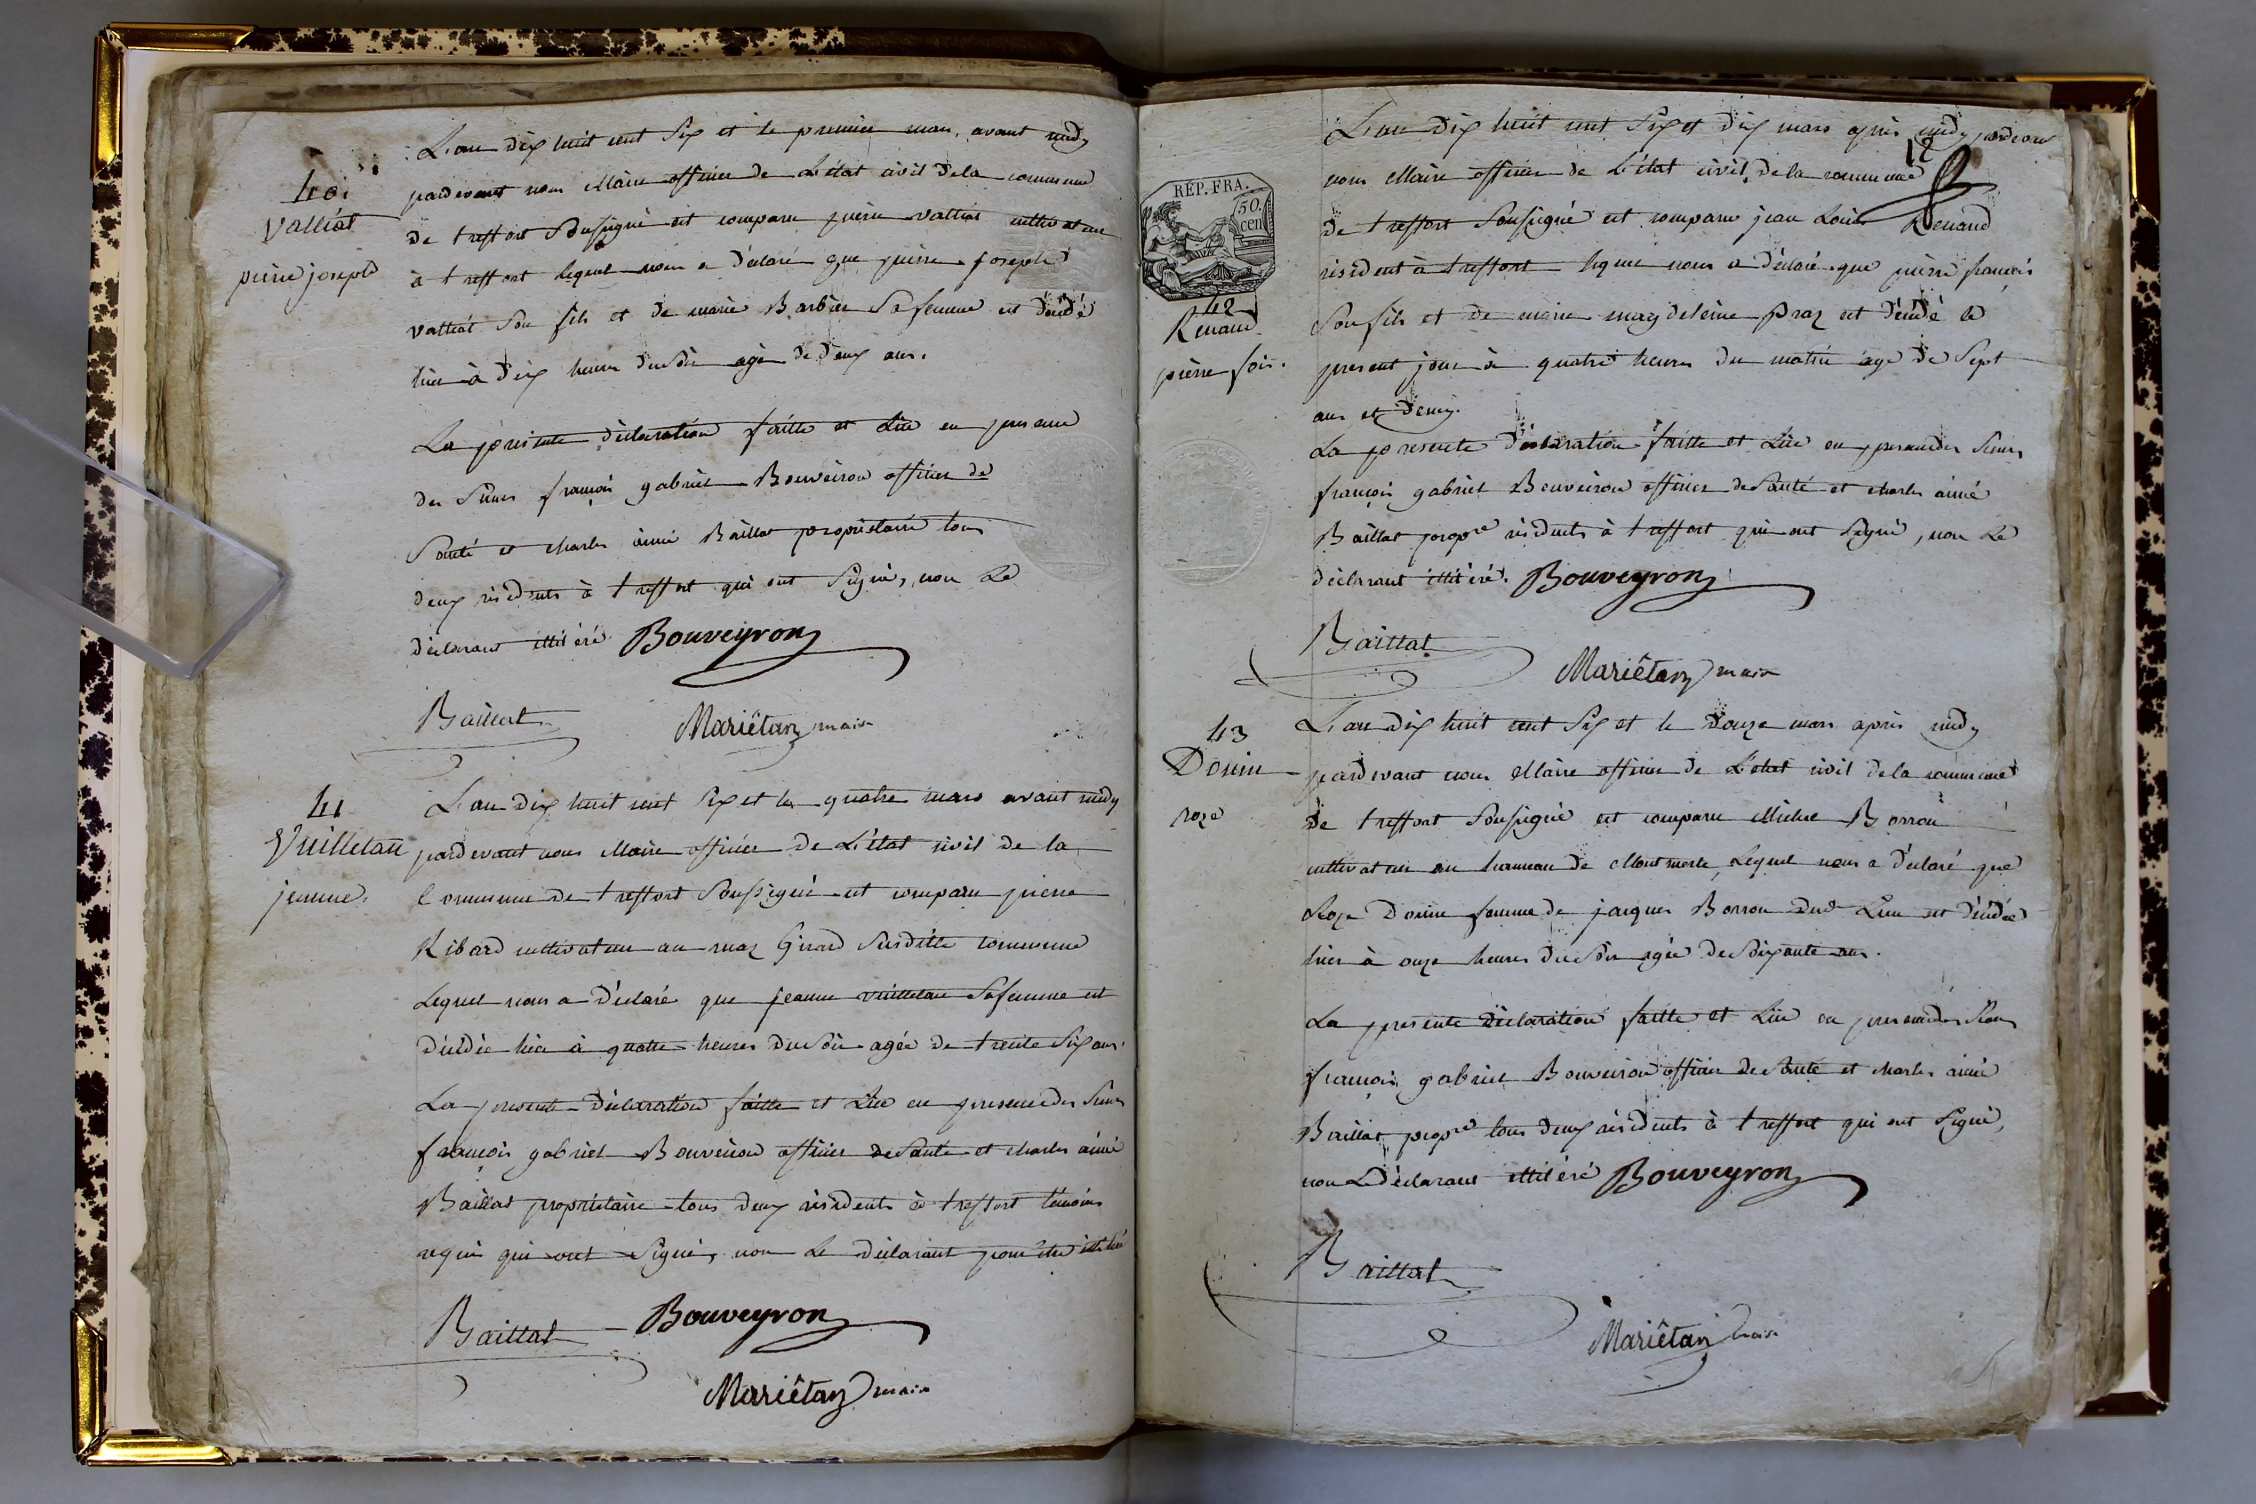 40.
Valliat
pierre joseph
L'an dix huit cent Six et le premier mars, avant midy
pardevant nous Maire officier de L'état civil de la commune
de treffort Soussigné est comparu pierre valliat cultivateur
à treffort lequel nous a déclaré que pierre joseph
valliat Son fils et de marie Barbier Sa femme est dédédé
hier à dix heures du Soir agé de deux ans.
La présente déclaration faitte et Lüe en presence
des Sieurs françois gabriel Bouveiron officier de
Santé et charles aimé Baillat propriétaire tous
deux résidents à treffort qui ont Signé, non Le
déclarant illitéré. Bouveyron
Baillat Mariêtan maire
41
Vuilletan
jeanne.
L'an dix huit cent Six et le quatre mars avant midy
pardevant nous Maire officier de L'état civil de la
Commune de treffort Soussigné est comparu pierre
Ribard cultivateur au maz Girard Susditte commune
Lequel nous a déclaré que jeanne vuilletan Sa femme est
décédée hier à quatre heures du Soir agée de trente Six ans.
La presente déclaration faitte et Lüe en presence des Sieurs
françois gabriel Bouveiron officier de Santé et charles aimé
Baillat propriétaire tous deux résidents à treffort témoins
requis qui ont Signé, non Le déclarant pour être illitéré
Baillat Bouveyron
Mariêtan maire
12
RÉP. FRA.
50.
cen
42
Renaud
pierre fois.
L'an dix huit cent Six et dix mars après midy pardevant
nous Maire officier de L'état civil de la commune
de treffort Soussigné est comparu jean Louis Renaud
résident à treffort lequel nous a déclaré que pierre françois
Son fils et de marie magdeleine praz est décédé le
present jour à quatre heures du matin agé de Sept
ans et demy.
La presente déclaration faitte et Lüe en presence des Sieurs
françois gabriel Bouveiron officier de Santé et charles aimé
Baillat propre résidents à treffort qui ont Signé, non Le
déclarant illitéré. Bouveyron
Baillat
Mariêtan maire
43
Donin
roze
L'an dix huit cent Six et le douze mars après midy
pardevant nous Maire officier de L'état civil de la commune
de treffort Soussigné est comparu Michel Borron
cultivateur au hameau de Montmerle, Lequel nous a déclaré que
Roze Donin femme de jacques Borron dud. Lieu est décédée
hier à onze heures du Soir agée de Soixante ans.
La presente déclaration faitte et Lüe en presence des Sieurs
françois gabriel Bouveiron officier de Santé et charles aimé
Baillat propre tous deux résidents à treffort qui ont Signé,
non Le déclarant illitéré Bouveyron
Baillat
Mariêtan maire